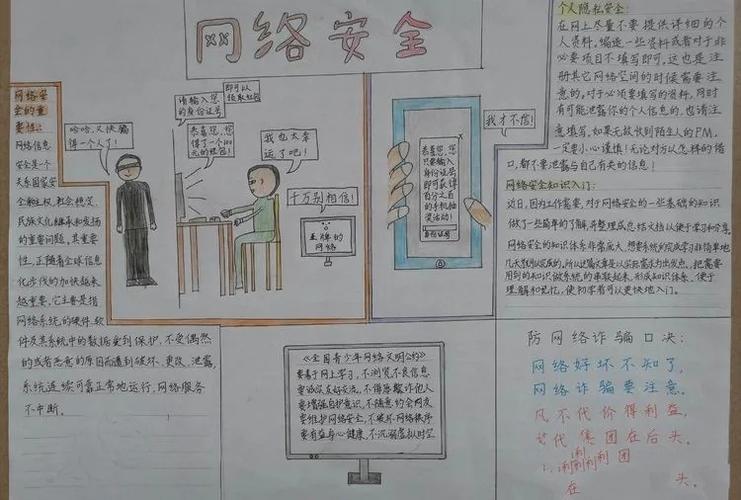 网络安全
网络安
全的重
要性:
网络信息
安全是一个
关系国家安
全和主权,社会稳定,
民族文化继承和发扬
的重要问题,其重要
性,正随着全球信息
化步伐的加快越来
越重要,它主要是指
网络系统的硬件,软
件及其系统中的数据受到保护,不受偶然
的或者恶意的原因而遭到破坏、更改、泄露,
系统连续可靠正常地运行,网络服务
不中断。
哈哈,又快骗
得一个人了!
请输入您
的身份证号
即可以
领取红包
恭喜您,您
得了一个100
元的红包!
我也太幸
运了吧!
千万别相信!
王牌的
网络
我才不信!
恭喜您,您
只要输入
身份证号
即可获得
百分之百
的手机抽
奖活动!
身份证号
个人隐私安全:
在网上尽量不要提供详细的个
人资料,编造一些资料或者对于非
必要项目不填写即可,这也是注
册其它网络空间的时候需要注
意的。对于必须要填写的资料,同时
有可能泄露你的个人信息的,也请注
意填写,如果无故收到陌生人的PM,
一定要小心谨慎!无论对方以怎样的借
口,都不要泄露与自己有关的信息!
网络安全知识入门:
近日,因为工作需要,对于网络安全的一些基础的知识
做了一些简单的了解,并整理成总结文档以便于学习和分享。
网络安全的知识体系非常庞大,想要系统的完成学习非简单地
几天就可以完成的。所以这篇文章是以实际需求为出发点,把需要
用到的知识做系统的串联起来,形成知识体系,便于
理解和记忆,使初学者可以更快地入门。
《全国青少年网络文明公约》
要善于网上学习,不浏览不良信息
要诚实友好交流,不侮辱欺诈他人
要增强自护意识,不随意约会网友
要维护网络安全,不破坏网络秩序
要有益身心健康,不沉溺虚拟时空
防网络诈骗口决:
网络好坏不知了,
网络诈骗要注意.
凡不代价得利益,
集团在后头.
团
在 头.